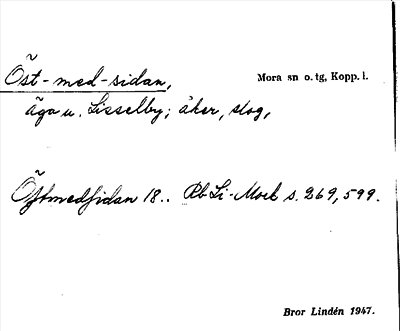 Öst-med-sidan,
Mora sn o. tg, Kopp. l.
äga u. Lisselby; åker, slog,
Östmedsidan 18.. Rb Li-Mork s. 269, 599.
Bror Lindén 1947.